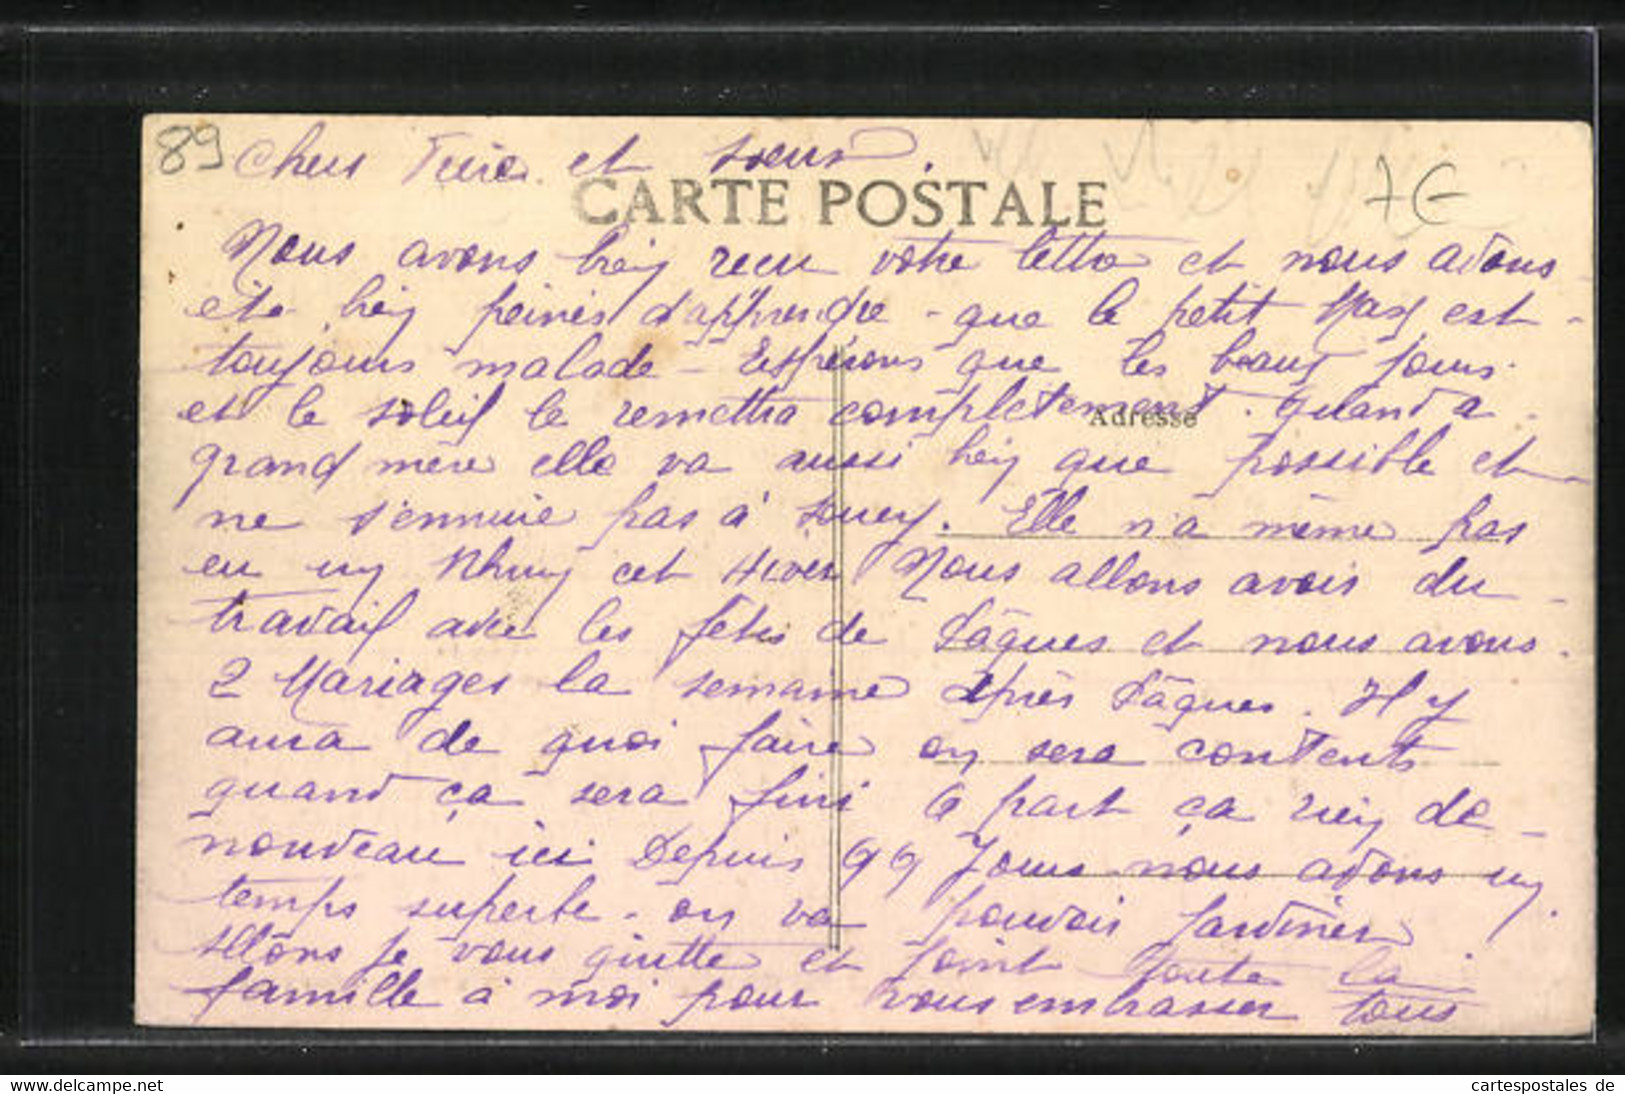 89
Chers Frère et sœur.
CARTE POSTALE
7€
Nous avons bien reçu votre lettre et nous avons
été bien peinés d'apprendre que le petit Max est
toujours malade - Espérons que les beaux jours
et le soleil le remettra complètement. Quand a
Adresse
grand mère elle va aussi bien que possible et
ne s'ennuie pas à Sucy. Elle n'a même pas
eu un Rhum cet Hiver Nous allons avoir du
travail avec les fêtes de Pâques et nous avons
2 Mariages la semaine après Pâques. Il y
aura de quoi faire on sera contents
quand ça sera fini à part ça rien de
nouveau ici Depuis qq Jours nous avons un
temps superbe - on va pouvoir Jardiner
Allons je vous quitte et joint toute la
famille à moi pour vous embrasser tous
www.delcampe.net
cartespostales de